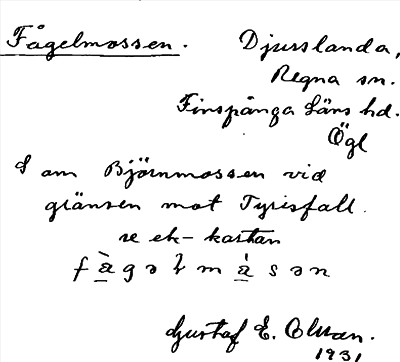 Fågelmossen. Djurslanda,
Regna sn.
Finspånga läns hd.
Ögl
S om Björnmossen vid
gränsen mot Tyrisfall.
se ek-kartan
Gustaf E. Olsson.
1931